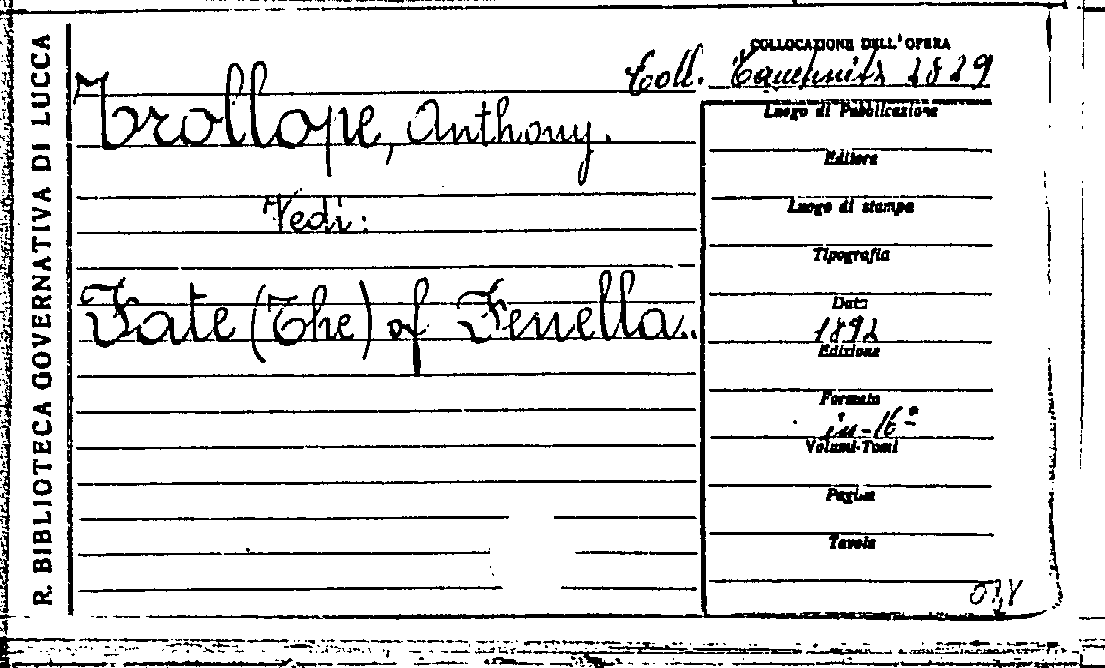 R. BIBLIOTECA GOVERNATIVA DI LUCCA
COLLOCAZIONE DELL'OPERA
Coll. Tauchnitz 2829
Trollope, Anthony.
Vedi:
Fate (The) of Fenella.
Luogo di Pubblicazione
Editore
Luogo di stampa
Tipografia
Data
1892
Edizione
Formato
in-16º
Volumi-Tomi
Pagine
Tavole